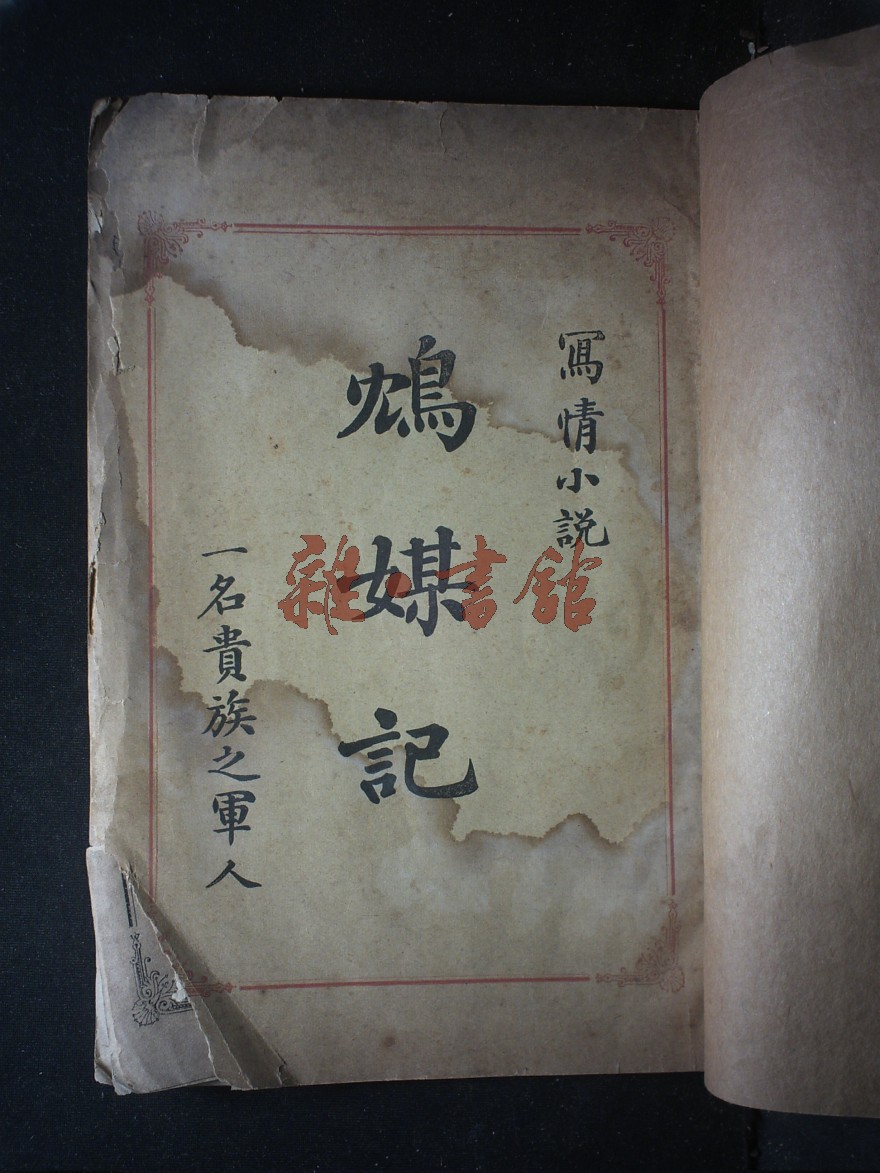 冩情小説
鴆媒記
一名貴族之軍人
雜書館